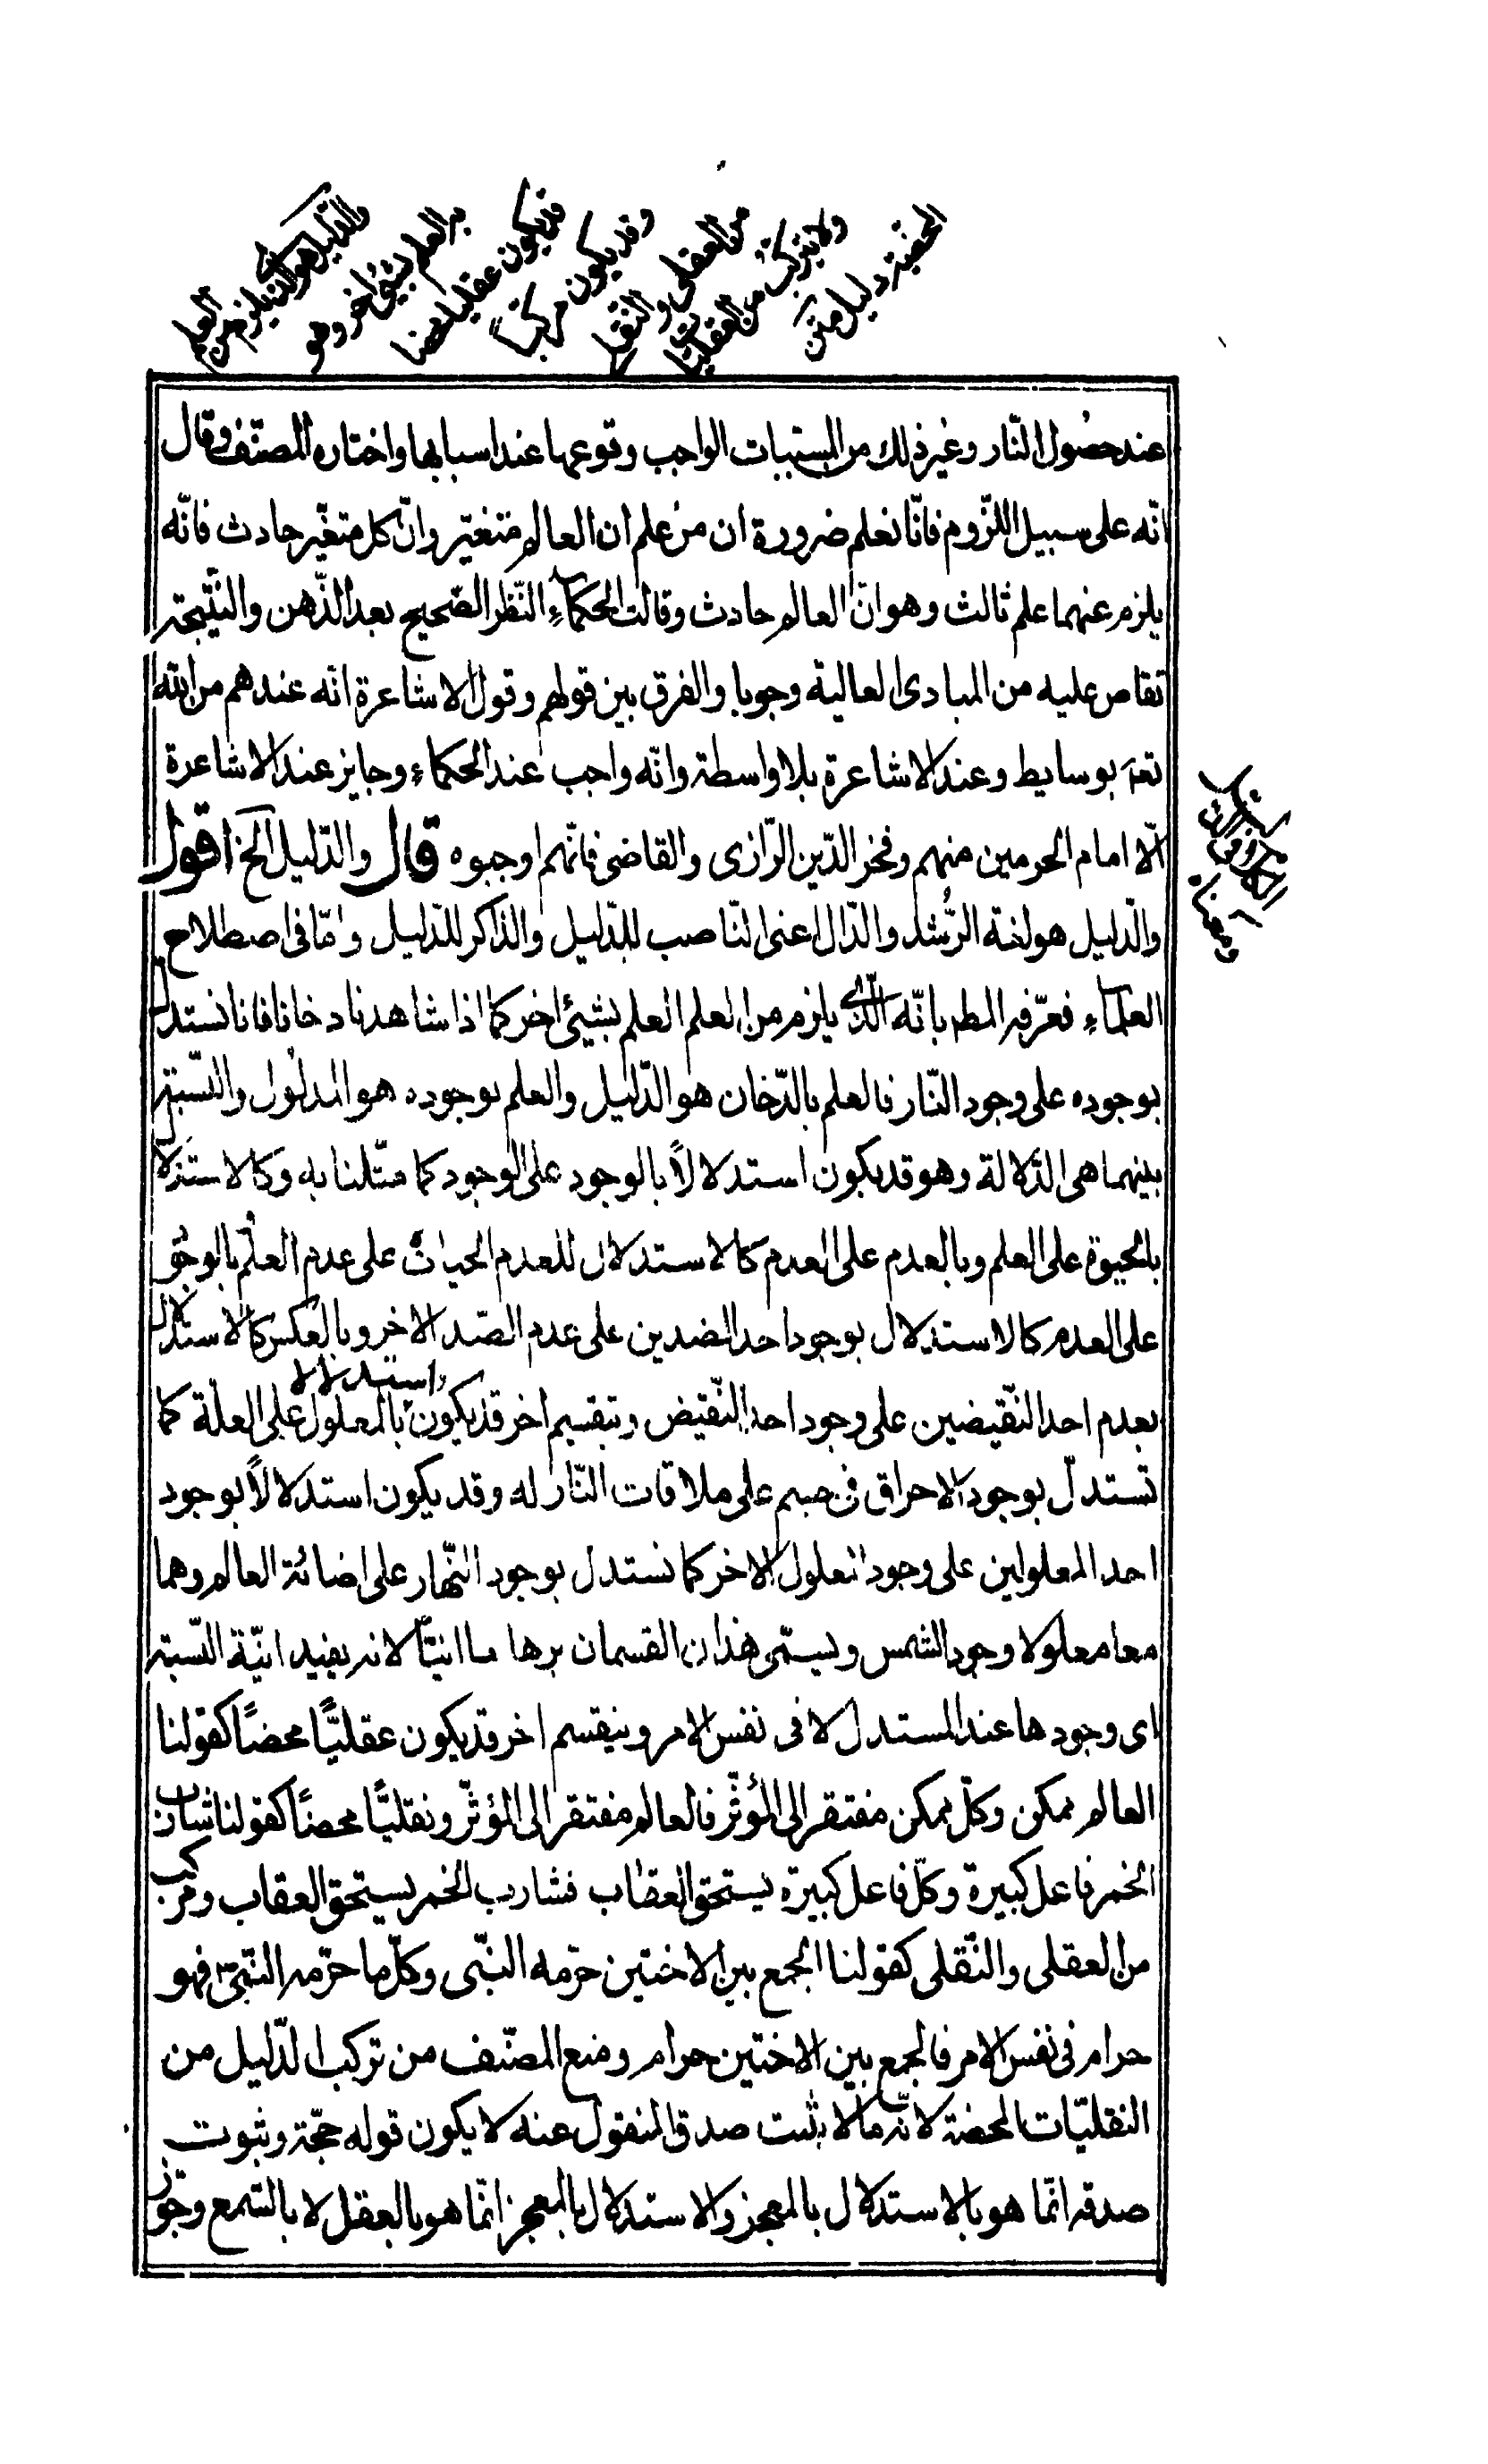 والدليل هو الذي يلزم من العلم
به العلم بشيئ اخر وهو
قد يكون عقليا محضا
وقد يكون مركبا
من العقلى والنقلى
ولا يتركب من النقليات
المحضة دليل متن
عند حصُول النّار وغير ذلك من المسبّبات الواجب وقوعها عند اسبابها واختاره المصنّف وقال
انّه على سبيل اللّزوم فانّا نعلم ضرورة ان من علم ان العالم متغيّر وانّ كل متغيّر حادث فانّه
يلزم عنهما علم ثالث وهو انّ العالم حادث وقالت الحكماء النّظر الصّحيح يعد الذّهن والنّتيجة
تفاض عليه من المبادى العالية وجوبا والفرق بين قولهم وقول الاشاعرة انّه عندهم من الله
تعـ بوسايط وعند الاشاعرة بلا واسطة وانّه واجب عند الحكماء وجايز عند الاشاعرة
الّا امام الحرمين منهم وفخر الدّين الرّازى والقاضى فانّهم اوجبوه قال والدّليل الخ اقول
والدّليل هو لغة المرُشد والدّال اعنى النّاصب للدّليل والذّاكر للدّليل وامّا فى اصطلاح
العلماء فعرّفه المطـ بانّه الّذى يلزم من العلم العلم بشيئ اخر كما اذا شاهدنا دخانا فانا نستدل
بوجوده على وجود النّار فالعلم بالدّخان هو الدّليل والعلم بوجوده هو المدلول والنّسبة
بينهما هى الدّلالة وهو قد يكون استدلالاً بالوجود على الوجود كما مثّلنا به وكالاستدلال
بالحيوة على العلم وبالعدم على العدم كالاستدلال للعدم الحيات على عدم العلم بالوجود
على العدم كالاستدلال بوجود احد الضدين على عدم الضّد الاخر وبالعكس كالاستدلال
بعدم احد النّقيضين على وجود احد النّقيض وبتقسيم اخر قد يكون استدلالا بالمعلول على العلّة كما
نستدلّ بوجود الاحراق فى جسم على ملاقات النّار له وقد يكون استدلالاً بوجود
احد المعلولين على وجود المعلول الاخر كما نستدل بوجود النّهار على اضائة العالم وهما
معا معلولا وجود الشمس ويسمّى هذان القسمان برهانا انيّاً لانه يفيد انيّة النّسبة
اى وجودها عند المستدل لا فى نفس الامر وينقسم اخر قد يكون عقليّاً محضاً كقولنا
العالم ممكن وكلّ ممكن مفتقر الى المؤثّر فالعالم مفتقر الى المؤثّر ونقليّاً محضاً كقولنا شارب
الخمر فاعل كبيرة وكلّ فاعل كبيرة يستحق العقاب فشارب الخمر يستحق العقاب ومركب
من العقلى والنّقلى كقولنا الجمع بين الاختين حرّمه النبّى وكلّ ما حرّمه النبّى فهو
حرام فى نفس الامر فالجمع بين الاختين حرام ومنع المصنّف من تركب الدّليل من
النقليّات المحضة لانّه ما لا يثبت صدق المنقول عنه لا يكون قوله حجّة وثبوت
صدقه انّما هو بالاستدلال بالمعجز والاستدلال بالمعجز انّما هو بالعقل لا بالسّمع وجوّز